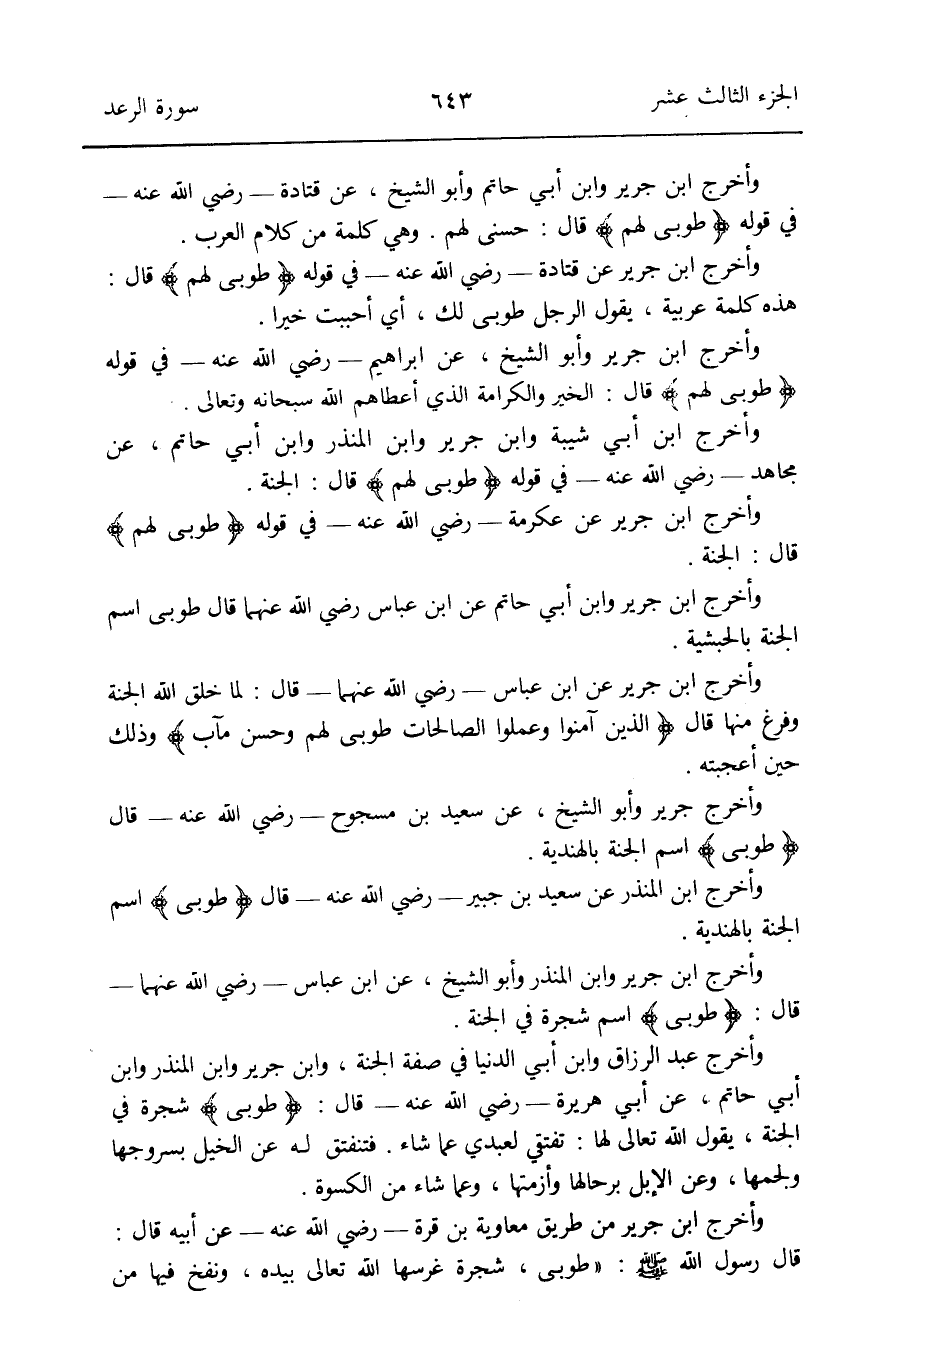 الجزء الثالث عشر ٦٤٣ سورة الرعد
وأخرج ابن جرير وابن أبي حاتم وأبو الشيخ ، عن قتادة — رضي الله عنه —
في قوله ﴿ طوبى لهم ﴾ قال : حسنى لهم . وهي كلمة من كلام العرب .
وأخرج ابن جرير عن قتادة — رضي الله عنه — في قوله ﴿ طوبى لهم ﴾ قال :
هذه كلمة عربية ، يقول الرجل طوبى لك ، أي أحببت خيرا .
وأخرج ابن جرير وأبو الشيخ ، عن ابراهيم — رضي الله عنه — في قوله
﴿ طوبى لهم ﴾ قال : الخير والكرامة الذي أعطاهم الله سبحانه وتعالى .
وأخرج ابن أبي شيبة وابن جرير وابن المنذر وابن أبي حاتم ، عن
مجاهد — رضي الله عنه — في قوله ﴿ طوبى لهم ﴾ قال : الجنة .
وأخرج ابن جرير عن عكرمة — رضي الله عنه — في قوله ﴿ طوبى لهم ﴾
قال : الجنة .
وأخرج ابن جرير وابن أبي حاتم عن ابن عباس رضي الله عنهما قال طوبى اسم
الجنة بالحبشية .
وأخرج ابن جرير عن ابن عباس — رضي الله عنهما — قال : لما خلق الله الجنة
وفرغ منها قال ﴿ الذين آمنوا وعملوا الصالحات طوبى لهم وحسن مآب ﴾ وذلك
حين أعجبته .
وأخرج جرير وأبو الشيخ ، عن سعيد بن مسجوح — رضي الله عنه — قال
﴿ طوبى ﴾ اسم الجنة بالهندية .
وأخرج ابن المنذر عن سعيد بن جبير — رضي الله عنه — قال ﴿ طوبى ﴾ اسم
الجنة بالهندية .
وأخرج ابن جرير وابن المنذر وأبو الشيخ ، عن ابن عباس — رضي الله عنهما —
قال : ﴿ طوبى ﴾ اسم شجرة في الجنة .
وأخرج عبد الرزاق وابن أبي الدنيا في صفة الجنة ، وابن جرير وابن المنذر وابن
أبي حاتم ، عن أبي هريرة — رضي الله عنه — قال : ﴿ طوبى ﴾ شجرة في
الجنة ، يقول الله تعالى لها : تفتقي لعبدي عما شاء . فتنفتق له عن الخيل بسروجها
ولجمها ، وعن الإبل برحالها وأزمتها ، وعما شاء من الكسوة .
وأخرج ابن جرير من طريق معاوية بن قرة — رضي الله عنه — عن أبيه قال :
قال رسول الله ﷺ : « طوبى ، شجرة غرسها الله تعالى بيده ، ونفخ فيها من